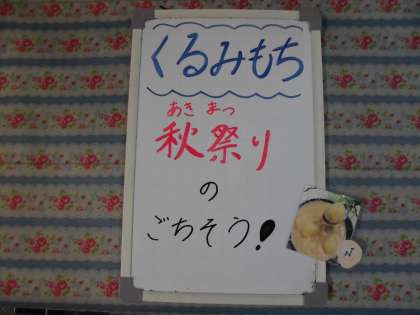 くるみもち
あき まつ
秋祭り
の
ごちそう!